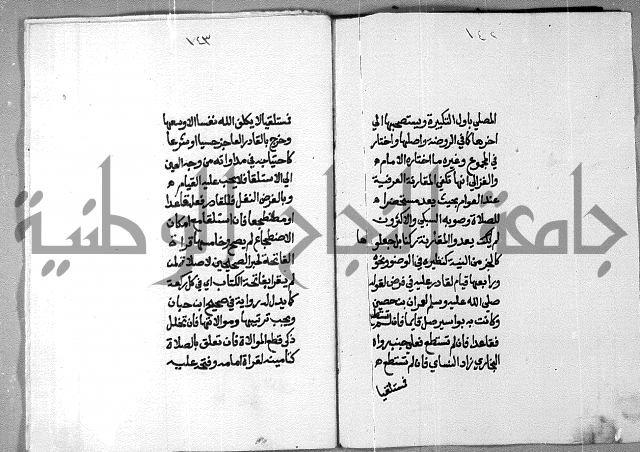 ١٤٢
المصلي باول التكبيرة ويستصحبها الي
اخرها كما في الروضة واصلها واختار
في المجموع وغيره ما اختاره الامام
والغزالي انها تكفي المقارنة العرفية
عند العوام بحيث يعد مستحضرا
للصلاة وصوبه السبكي والاكثرون
لم لك بعد والمقارنة ركنا بل جعلوها
كالجزء من النية كنظيره في الوضوء نحوه
ورابعها قيام لقادر عليه في فرض لقوله
صلي الله عليه وسلم لعمران بن حصين
وكانت به بواسير صل قايما فان لم تستطع
فقاعدا فان لم تستطع فعلي جنب رواه
البخاري زاد النسائي فان لم تستطع
فمستلقيا
١٤٣
فمستلقيا لا يكلف الله نفسا الا وسعها
وخرج بالقادر العاجز حسيا او شرعا
كاحتياجه في مداواته من وجع العين
الي الاستلقا فلا يجب عليه القيام
وبالفرض النفل فللقادر فعله قاعدا
او مضطجعا فان استلقا مع امكان
الاضطجاع لم يصح وخامسها قراة
الفاتحة لخبر الصحيحين لا صلاة لمن
لم يقرا بفاتحة الكتاب اي في كل ركعة
كما يدل له رواية في صحيح ابن حبان
ويجب ترتيبها وموالاتها فان تخلل
ذكر قطع الموالاة فان تعلق بالصلاة
كتامينه لقراة امامه وفتحه عليه
جامعة النجاح الوطنية